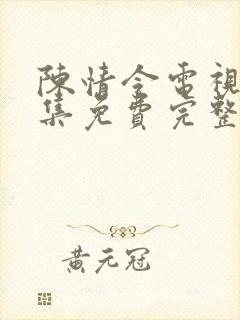 陳情令電視
集免費完整
黃元冠